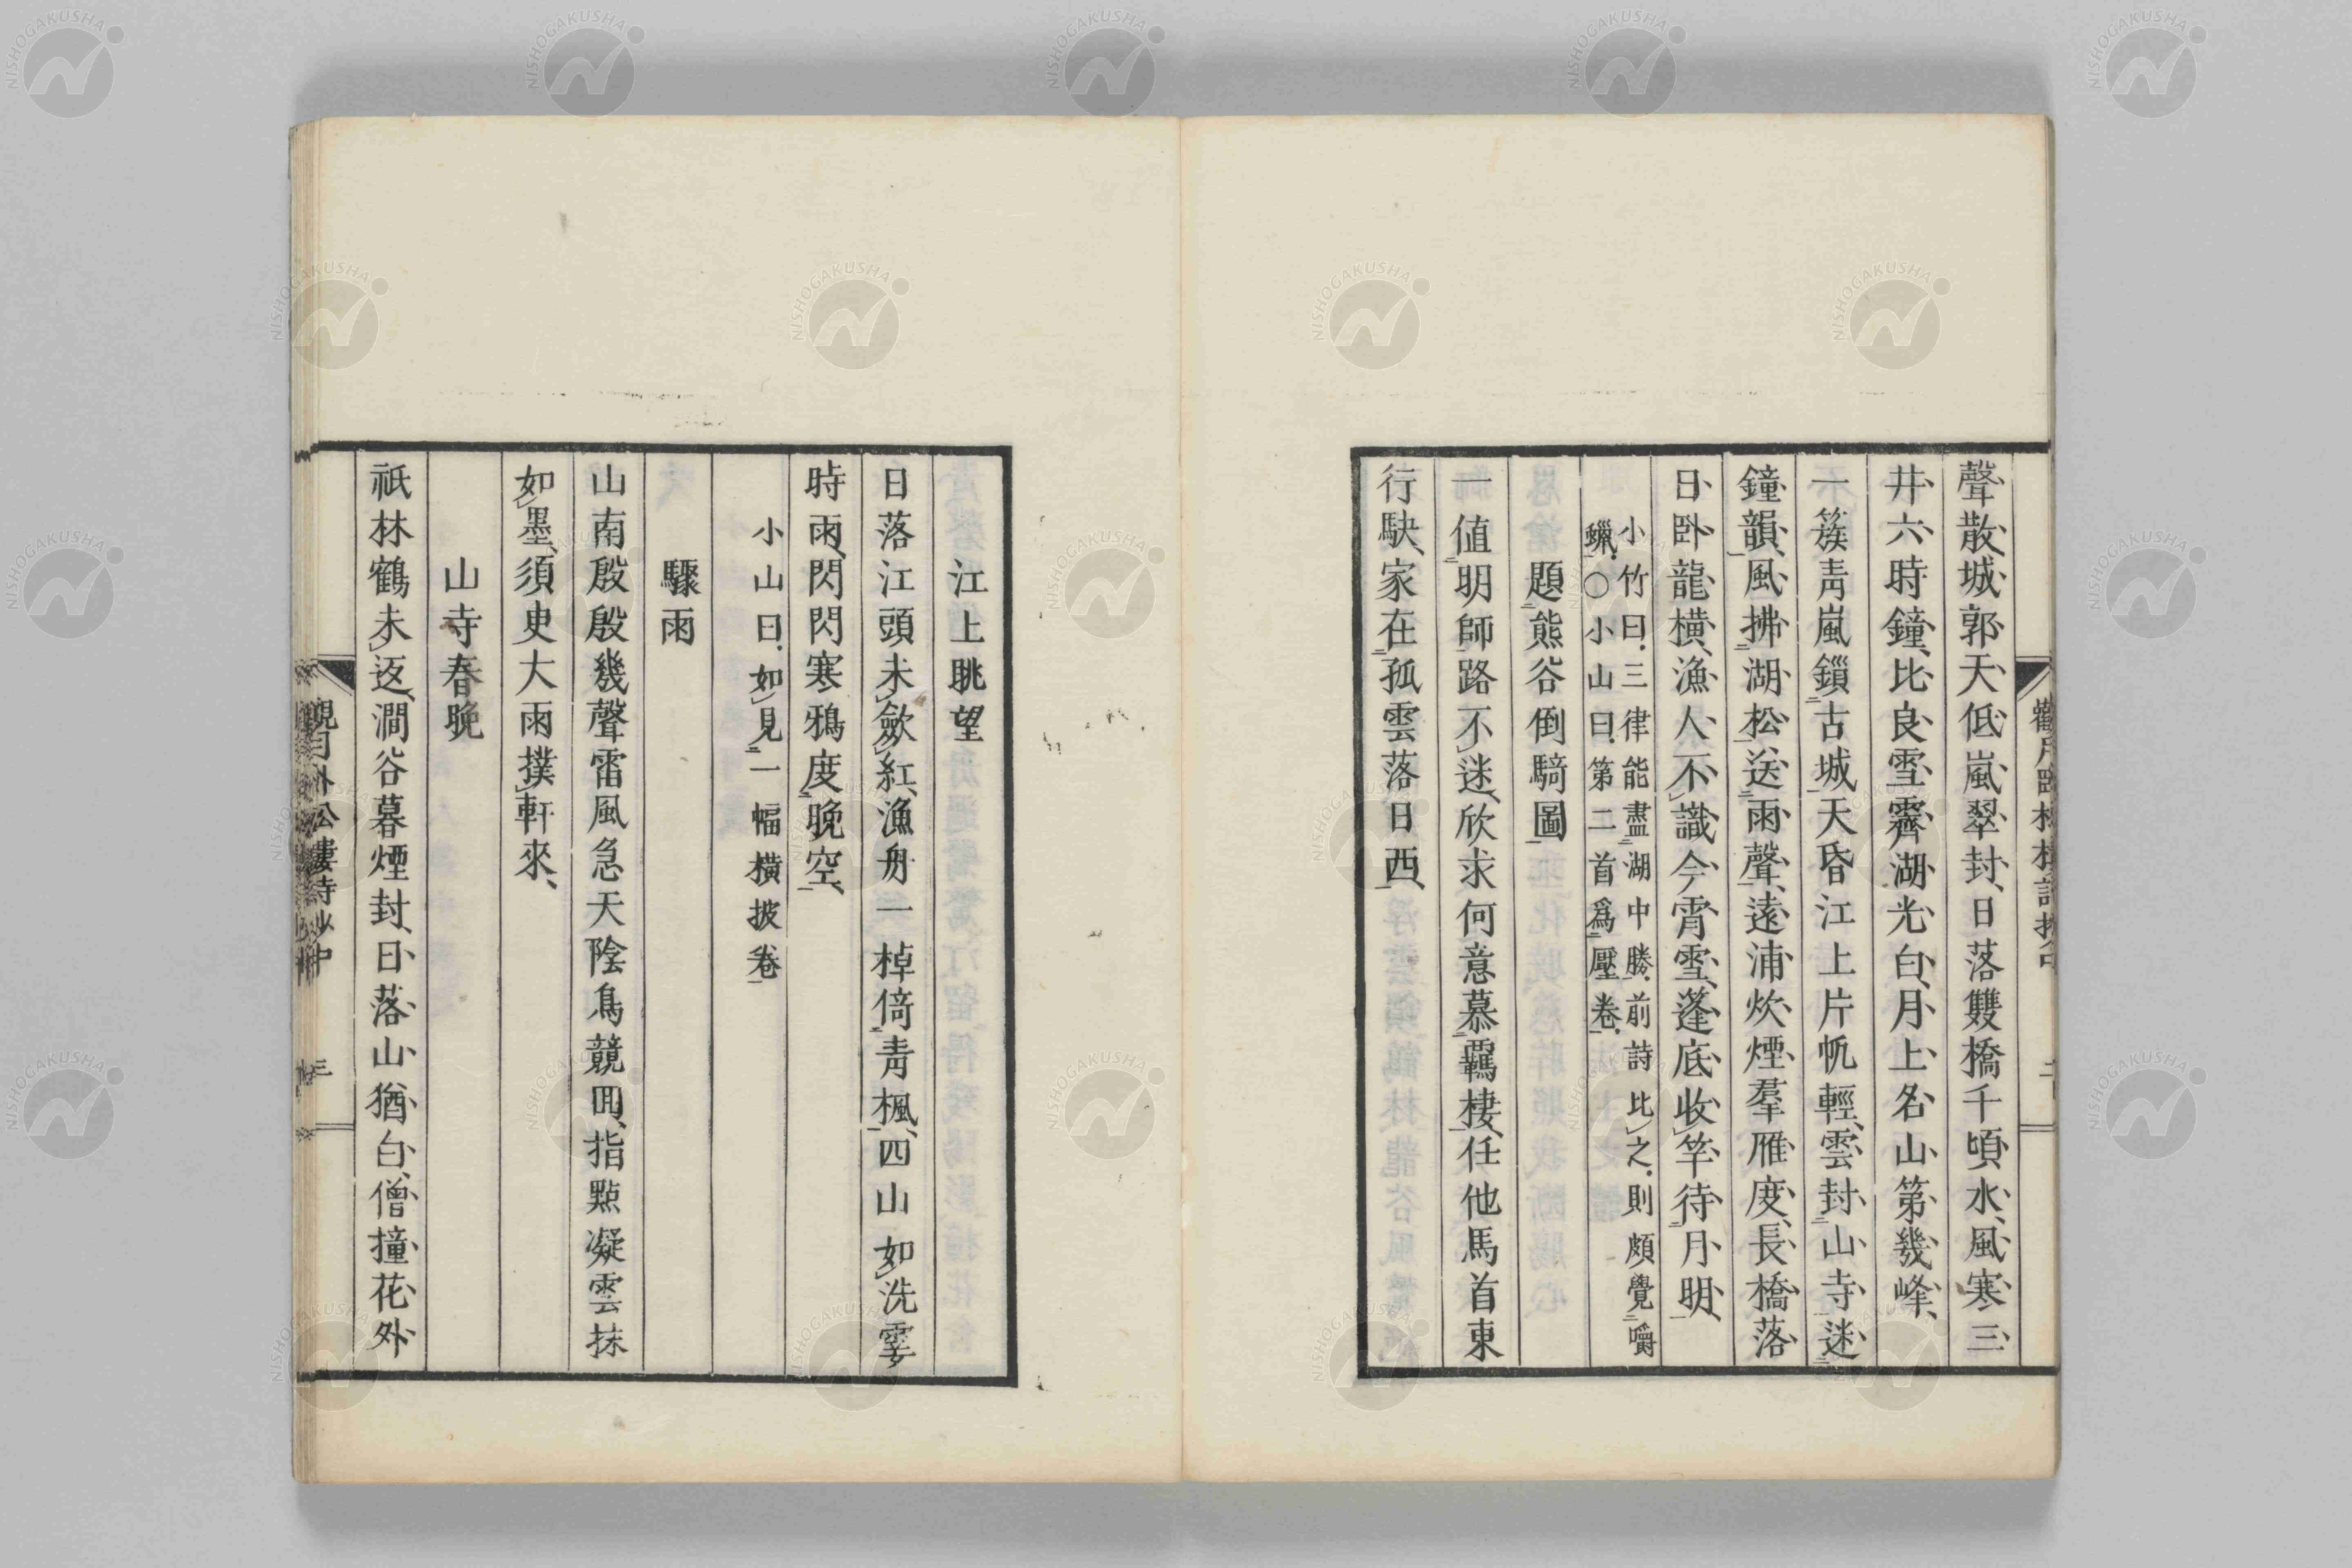 聲散城郭天低嵐翠封日落雙橋千頃水風寒三
井六時鐘比良雪霽湖光白月上名山第幾峰
一簇靑嵐鎻古城天昏江上片帆輕雲封山寺迷
鐘韻風拂湖松送雨聲遠浦炊煙羣雁度長橋落
日臥龍橫漁人不識今宵雪蓬底收竿待月明
小竹曰三律能盡湖中勝前詩比之則頗覺嚼
蠟〇小山曰第二首爲壓卷
題熊谷倒騎圖
一値明師路不迷欣求何意慕羈棲任他馬首東
行駃家在孤雲落日西
江上眺望
日落江頭未斂紅漁舟一棹倚靑楓四山如洗霎
時雨閃閃寒鴉度晚空
小山曰如見一幅橫披卷
驟雨
山南殷殷幾聲雷風急天陰鳥競囘指點凝雲抹
如墨須臾大雨撲軒來
山寺春晚
祇林鶴未返澗谷暮煙封日落山猶白僧撞花外